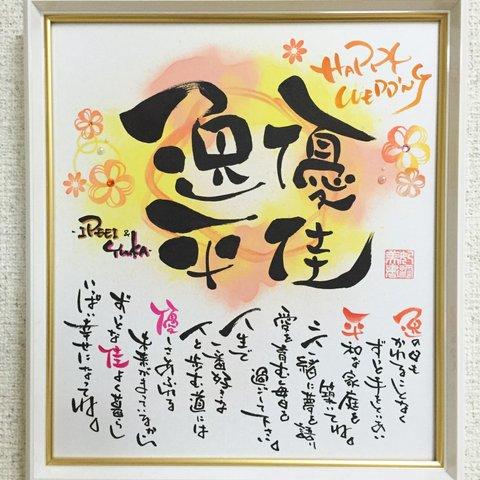 HAPPY WEDDING
優佳
逸平
IPPEI & Yuka
逸の日も
かわることなく
ずっと手をとりあい
平和な家庭を
築いてね。
二人一緒に夢を語り
愛を育む毎日を
過ごして下さい。
人生で
一番好きな
人と歩む道には
優しさあふれる
未来がまっているから
ずっとな佳よく暮らし
いっぱい幸せになってね。